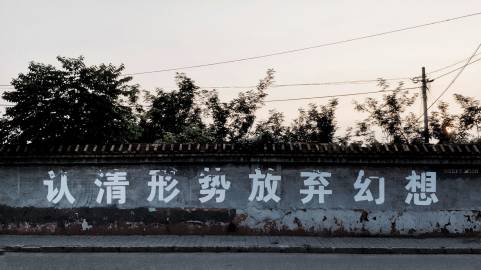 认清形势放弃幻想